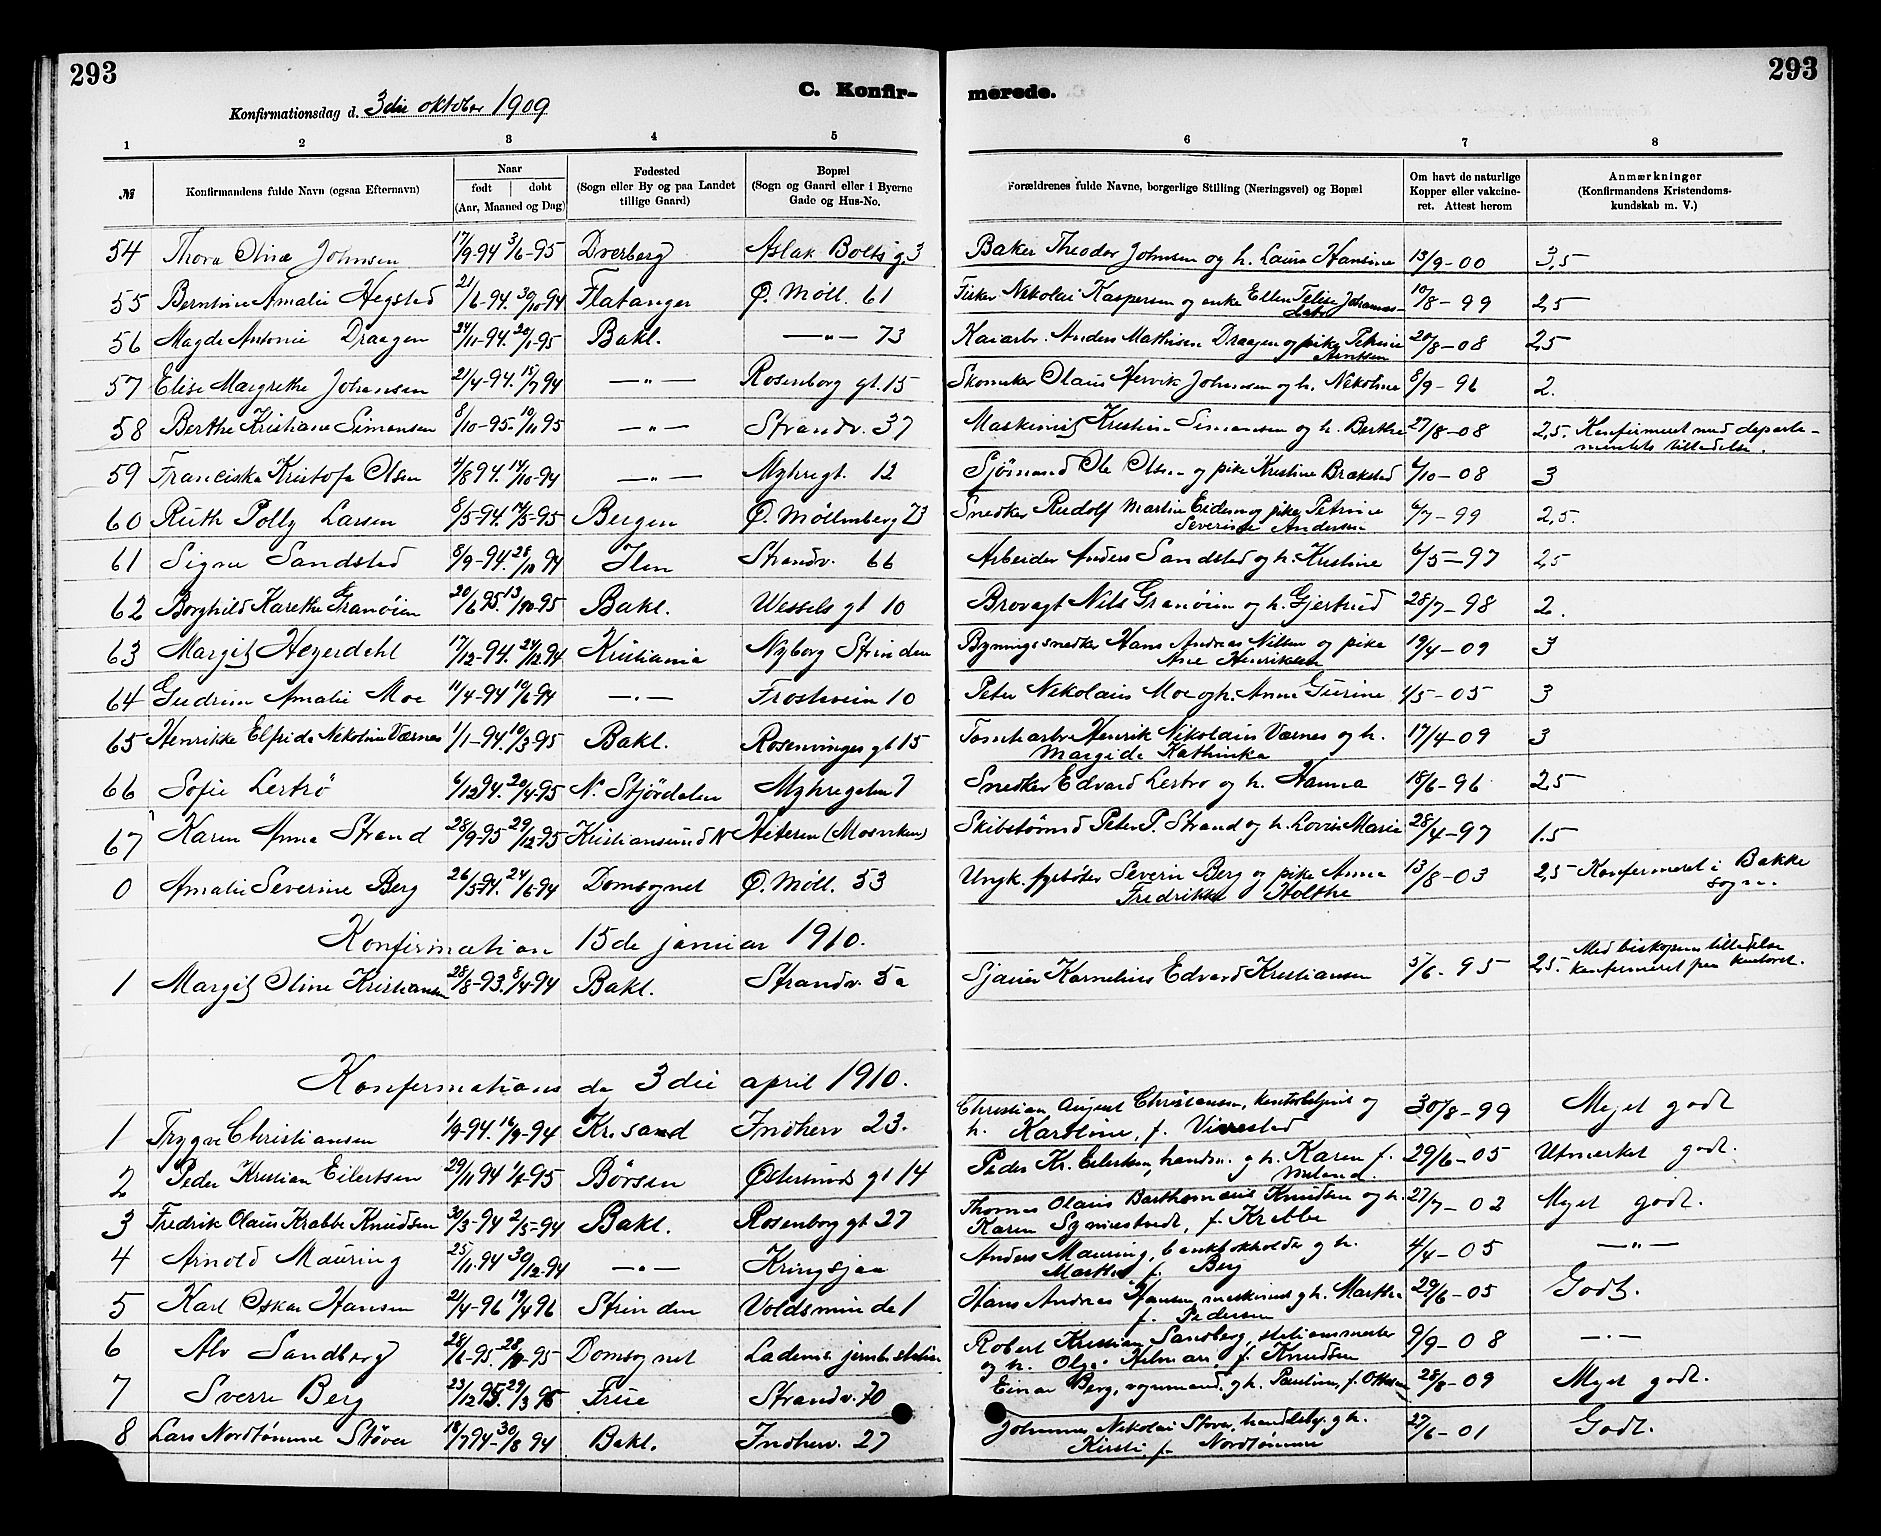 293
293
C. Konfir-
merede.
Konfirmationsdag d. 3die oktober 1909
1 2 3 4 5 6 7 8
№
Konfirmandens fulde Navn (ogsaa Efternavn)
Naar
født | døbt
(Aar, Maaned og Dag)
Fødested
(Sogn eller By og paa Landet
tillige Gaard)
Bopæl
(Sogn og Gaard eller i Byerne
Gade og Hus-No.
Forældrenes fulde Navne, borgerlige Stilling (Næringsvei) og Bopæl
Om havt de naturlige
Kopper eller vakcine-
ret. Attest herom
Anmærkninger
(Konfirmandens Kristendoms-
kundskab m. V.)
54 Thora Olina Johnsen 17/9-94 3/6-95 Dverberg Aslak Bolts g. 3 Baker Theodor Johnsen og h. Laura Hansine 13/9-00 3,5
55 Berntine Amalie Hegsted 21/6-94. 30/10-94 Flatanger Ø. Møll. 61 Fisker Nikolai Kaspersen og enke Ellen Telise Johannes-
datr 10/8-99 2,5
56 Magda Antonie Draagen 24/11-94. 20/1-95 Bakl. —"— 73 Kaiarbr. Anders Mathisen Draagen og pike Petrine
Arntsen 20/8-08 2,5
57 Elise Margrethe Johansen 21/4-94. 15/7 94 —"— Rosenborg gt. 15 Skomaker Olaus Hervik Johansen og h. Nikoline 8/9-96 2.
58 Berthe Kristiane Simonsen 8/10-95. 10/11 95 —"— Strandv. 37 Maskinist Kristian Simonsen og h. Berthe 27/8-08 2,5. Konfirmeret med departe-
mentets tilladelse.
59 Franciska Kristofa Olsen 4/8 94. 14/10-94 —"— Myhregt. 12 Sjömand Ole Olsen og pike Kristine Brækstad 6/10-08 3
60 Ruth Polly Larsen 8/5-94. 17/5-95 Bergen Ø. Möllenberg 73 Snedker Rudolf Martin Eidem og pike Petrine
Severine Andersen 6/7-99 2,5.
61 Signe Sandsted 8/9-94. 28/10 94 Ilen Strandv. 66 Arbeider Anders Sandsted og h. Kristine 6/5-97 2,5
62 Borghild Karethe Granöien 20/6 95. 13/10-95 Bakl. Wessels gt 10 Brovagt Nils Granöien og h. Gjertrud 28/7-98 2.
63 Margit Heyerdahl 17/12-94. 24/12 94 Kristiania Nyborg Strinden Bygningssnedker Hans Andreas Nilsen og pike
Ane Henriksen 19/4-09 3
64 Gudrun Amalie Moe 11/4-94 10/6-94 —"— Frostavein 10 Peter Nikolaus Moe og h. Anne Gurine 4/5-05 3
65 Henrikke Elfrida Nikoline Værnes 1/1-94. 19/3-95 Bakl. Rosenvinges gt 15 Tomtearbr Henrik Nikolaus Værnes og h.
Margide Kathinka 17/4-09 3
66 Sofie Lerbrö 6/12 94. 20/4-95 N. Stjördalen Myhregaten 7 Snedker Edvard Lerbro og h. Hanna 18/6-96 2,5
67 Karen Anna Strand 28/9-95 29/12-95 Kristiansund N Heteren (Mosviken) Skibstömd Peter P. Strand og h. Lovise Marie 28/4-97 1.5
0 Amalie Severine Berg 26/5-94. 24/6-94 Domsognet Ø. Möll. 53 Ungk. fyrböter Severin Berg og pike Anna
Fredrikke Holthe 13/8-03 2,5 Konfirmeret i Bakke
sogn.
Konfirmation 15de januar 1910.
1 Margit Oline Kristiansen 28/8-93. 8/4-94 Bakl. Strandv. 5a Sjauer Kornelius Edvard Kristiansen 5/6-95 2,5. Med biskopens tilladelse
konfirmeret paa kontoret.
Konfirmations da 3die april 1910.
1 Trygve Christiansen 1/9-94. 16/9-94 Kr.sand Indherv 23. Christian August Christiansen, kontorbetjent og
h. Karoline, f. 30/8-99 Meget godt
2 Peder Kristian Eilertsen 29/11 94 1/1-95 Börsen Östersunds gt 14 Peder Kr. Eilertsen, handm. g h. Karen f. 29/6-05 Utmerket godt.
3 Fredrik Olaus Krabbe Knudsen 30/3-94 2/5-94 Bakl. Rosenborg gt 27 Thomas Olaus Bartholomæus Knudsen og h.
Karen f. Krabbe 27/7-02 Myet godt.
4 Arnold Mauring 25/11 94 30/12-94 —"— Kringsjaa Anders Mauring, bankbokholder g h.
Martha f. Berg 4/4-05 —"—
5 Karl Oskar Hansen 21/4-96 19/4 96 Strinden Voldsminde 1 Hans Andreas Hansen, maskinist g h. Martha
f. Pedersen 29/6-05 Godt.
6 Alv Sandberg 28/6-95. 28/10-95 Domsognet Lademo. jernb. station Robert Kristian Sandberg, stationsmester
og h. Olga Helmar, f. Knudsen 9/9-08 —"—
7 Sverre Berg 23/12 95. 29/3 96 Frue Strandv. 70 Einar Berg, vognmand. g h. Pauline, f. Ottesen 28/8-09 Myet godt.
8 Lars Nordtömme Stöver 18/7 94- 30/8 94 Bakl. Indherv. 27 Johannes Nikolai Stöver, handelsbg. g h.
Kirsti, f. Nordtömme 27/6-01 Godt.